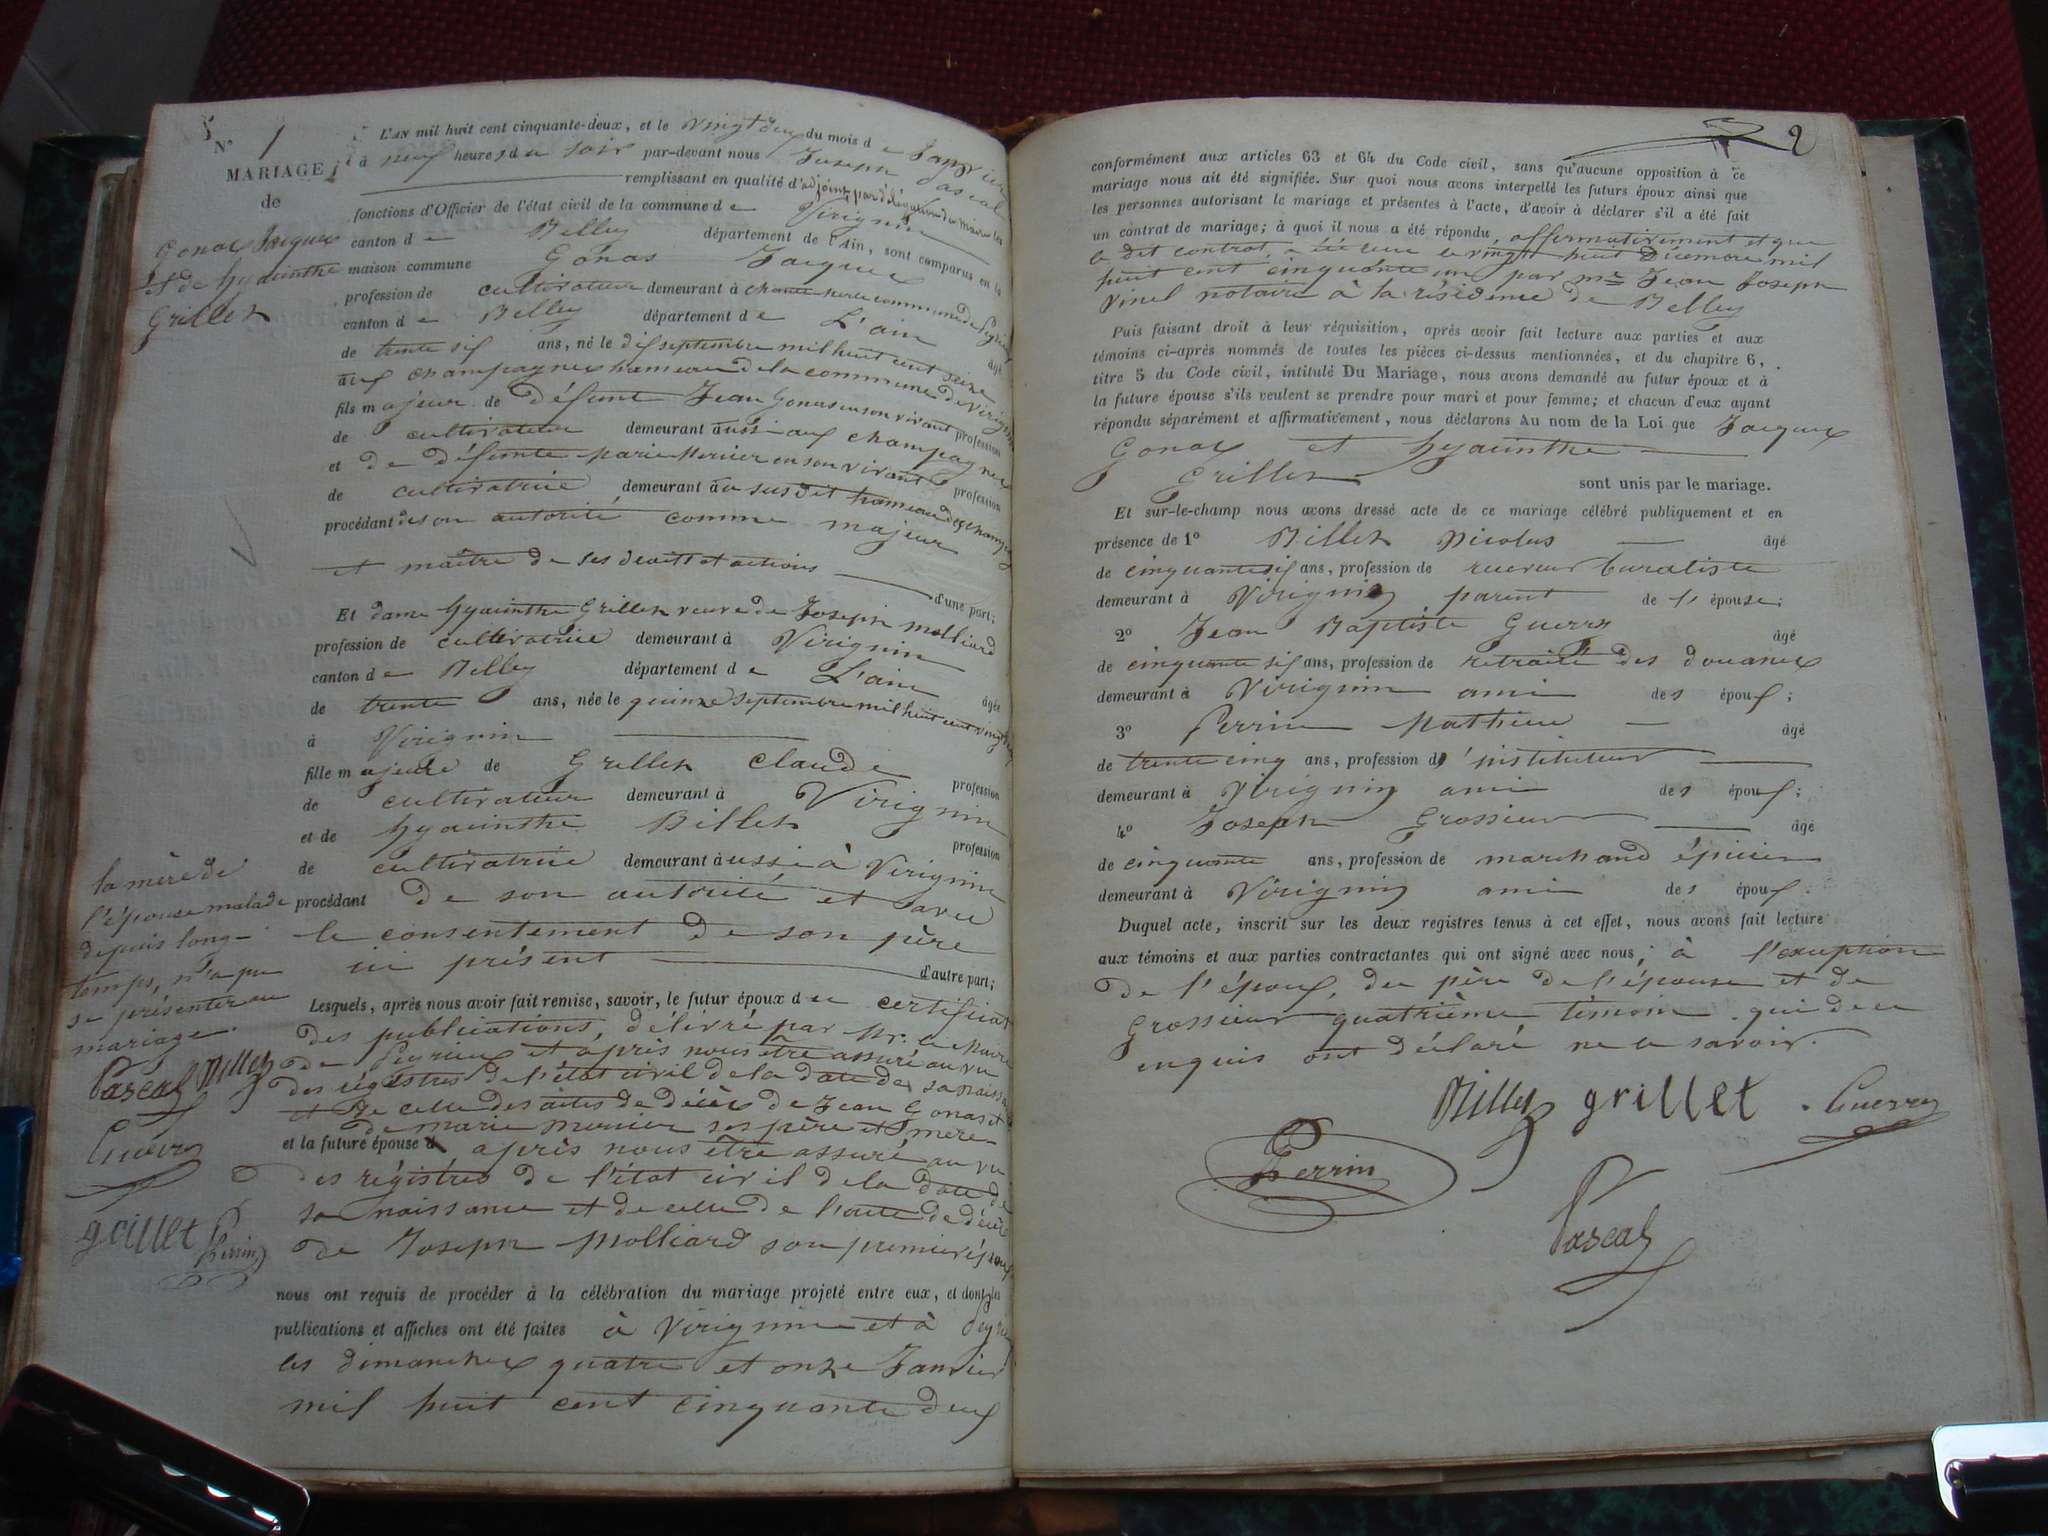 N° 1
MARIAGE
de
Gonas Jacques
et de hyacinthe
Grillet
L'AN mil huit cent cinquante-deux, et le vingt deux du mois de Janvier
à neuf heures du soir par-devant nous Joseph Pascal
remplissant en qualité d'adjoint par délégation du maire les
fonctions d'Officier de l'état civil de la commune de Virignin
canton de Belley département de l'Ain, sont comparus en la
maison commune Gonas Jacques
profession de cultivateur demeurant à commune de Peyrieu
canton de Belley département de L'ain âgé
de trente six ans, né le dix septembre mil huit cent seize
aux champagnes hameau de la commune de Virignin
fils majeur de défunt Jean Gonas en son vivant profession
de cultivateur demeurant aussi aux champagnes
et de défunte marie Mercier en son vivant profession
de cultivatrice demeurant au susdit hameau des champagnes
procédant de son autorité comme majeur
et maître de ses droits et actions
d'une part;
Et dame hyacinthe Grillet veuve de Joseph Molliard
profession de cultivatrice demeurant à Virignin
canton de Belley département de L'ain âgée
de trente ans, née le quinze septembre mil huit cent vingt un
à Virignin
fille majeure de Grillet Claude profession
de cultivateur demeurant à Virignin
et de hyacinthe Billet profession
de cultivatrice demeurant aussi à Virignin
procédant de son autorité et avec
le consentement de son père
ici présent
d'autre part;
la mère de
l'épouse malade
depuis long-
temps, n'a pu
se présenter au
mariage.
Pascal Billet
Guerry
grillet Perrin
Lesquels, après nous avoir fait remise, savoir, le futur époux du certificat
des publications, délivré par Mr. le Maire
de Peyrieu et après nous être assuré au vu
des régistres de l'état civil de la date de sa naissance
et de celle des actes de décès de Jean Gonas et
de marie mercier ses père et mère
et la future épouse d après nous être assuré au vu
des régistres de l'état civil de la date de
sa naissance et de celle de l'acte de décès
de Joseph Molliard son premier époux
nous ont requis de procéder à la célébration du mariage projeté entre eux, et dont les
publications et affiches ont été faites à Virignin et à Peyrieu
les dimanches quatre et onze Janvier
mil huit cent cinquante deux
2
conformément aux articles 63 et 64 du Code civil, sans qu'aucune opposition à ce
mariage nous ait été signifiée. Sur quoi nous avons interpellé les futurs époux ainsi que
les personnes autorisant le mariage et présentes à l'acte, d'avoir à déclarer s'il a été fait
un contrat de mariage; à quoi il nous a été répondu affirmativement et que
le dit contrat, a été reçu le vingt huit Décembre mil
huit cent cinquante un par me Jean Joseph
Vinel notaire à la résidence de Belley
Puis faisant droit à leur réquisition, après avoir fait lecture aux parties et aux
témoins ci-après nommés de toutes les pièces ci-dessus mentionnées, et du chapitre 6,
titre 5 du Code civil, intitulé Du Mariage, nous avons demandé au futur époux et à
la future épouse s'ils veulent se prendre pour mari et pour femme; et chacun d'eux ayant
répondu séparément et affirmativement, nous déclarons Au nom de la Loi que Jacques
Gonas et hyacinthe
Grillet sont unis par le mariage.
Et sur-le-champ nous avons dressé acte de ce mariage célébré publiquement et en
présence de 1° Billet Nicolas âgé
de cinquante six ans, profession de receveur buraliste
demeurant à Virignin parent de l'épouse;
2° Jean Baptiste Guerry âgé
de cinquante six ans, profession de retraité des douanes
demeurant à Virignin ami des époux;
3° Perrin Mathieu âgé
de trente cinq ans, profession d'instituteur
demeurant à Virignin ami des époux;
4° Joseph Grossieur âgé
de cinquante ans, profession de marchand épicier
demeurant à Virignin ami des époux
Duquel acte, inscrit sur les deux registres tenus à cet effet, nous avons fait lecture
aux témoins et aux parties contractantes qui ont signé avec nous; à l'exception
de l'époux, du père de l'épouse et de
Grossieur quatrième témoin qui de ce
enquis ont déclaré ne le savoir.
Billet grillet Guerry
Perrin
Pascal